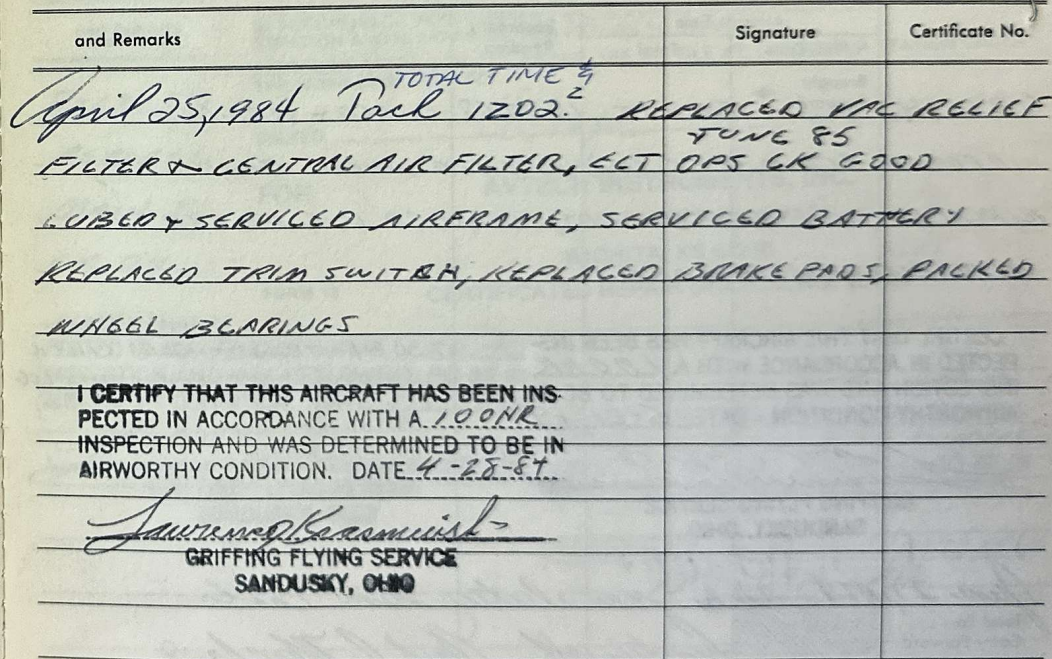 and Remarks
Signature
Certificate No.
TOTAL TIME
April 25, 1984 Tach 1202.2 REPLACED VAC RELIEF
JUNE 85
FILTER & CENTRAL AIR FILTER, ELT OPS CK GOOD
LUBED & SERVICED AIRFRAME, SERVICED BATTERY
REPLACED TRIM SWITCH, REPLACED BRAKE PADS, PACKED
WHEEL BEARINGS
I CERTIFY THAT THIS AIRCRAFT HAS BEEN INS-
PECTED IN ACCORDANCE WITH A 100HR
INSPECTION AND WAS DETERMINED TO BE IN
AIRWORTHY CONDITION. DATE 4-28-84
GRIFFING FLYING SERVICE
SANDUSKY, OHIO